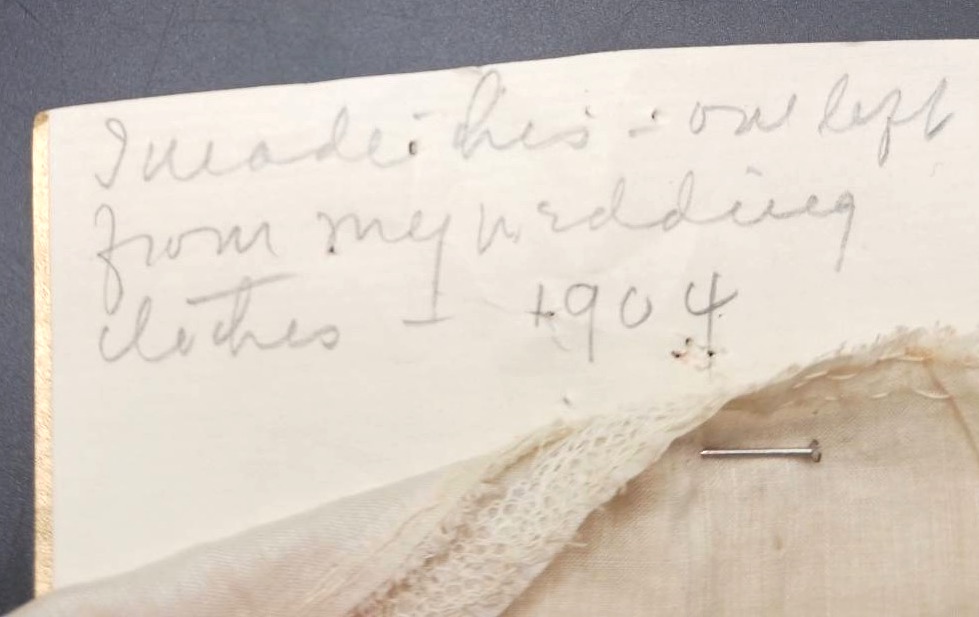 I made this - one left
from my wedding
clothes - 1904